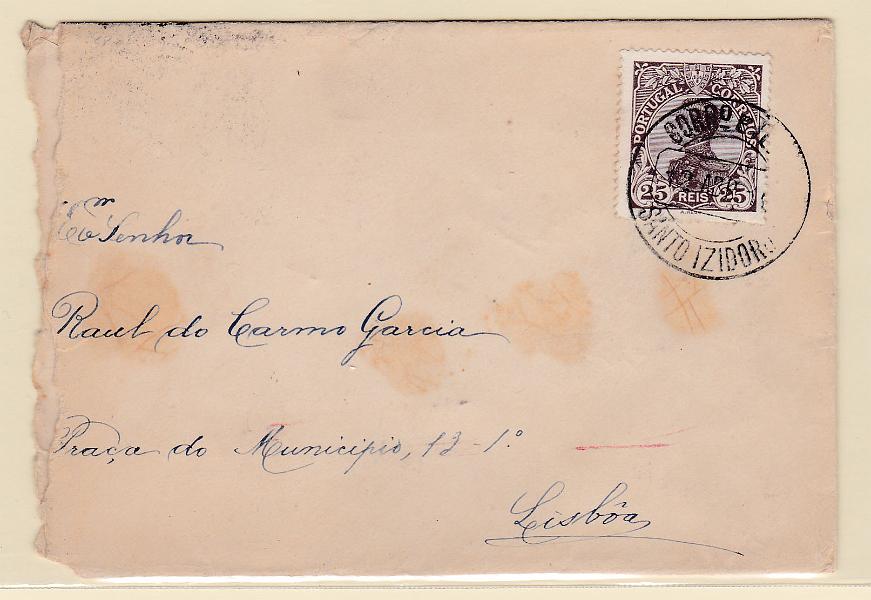 PORTUGAL CORREIOS
25 REIS 25
SANTO IZIDORO
Exmo Senhor
Raul do Carmo Garcia
Praça do Municipio, 13-1º
Lisbôa